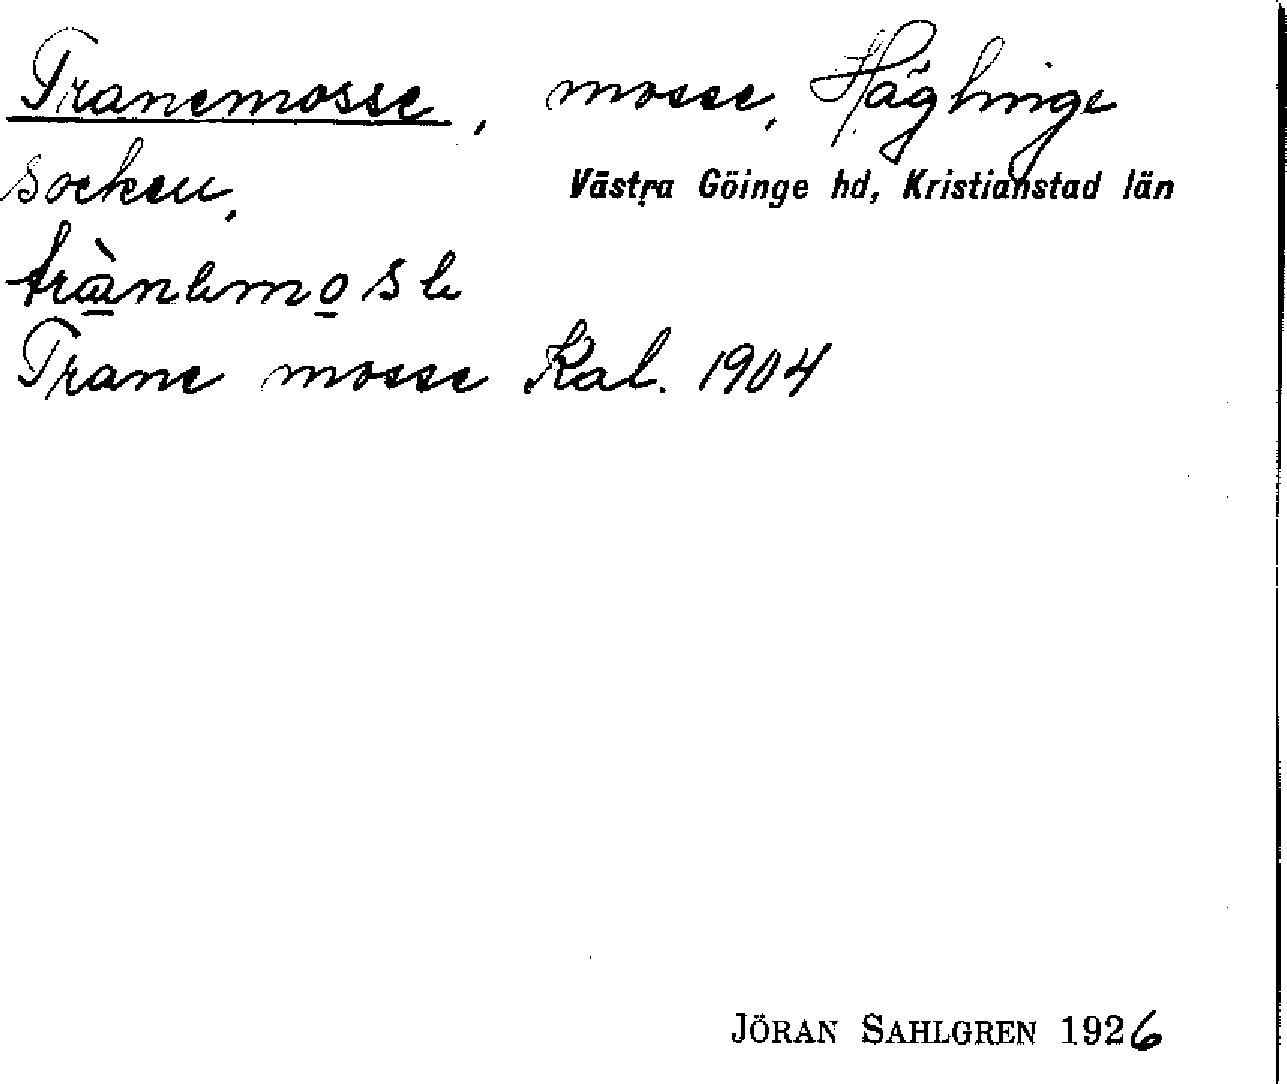 Tranemosse, mosse, Häglinge
socken, Västra Göinge hd, Kristianstad län
Trane mosse Kal. 1904
JÖRAN SAHLGREN 1926